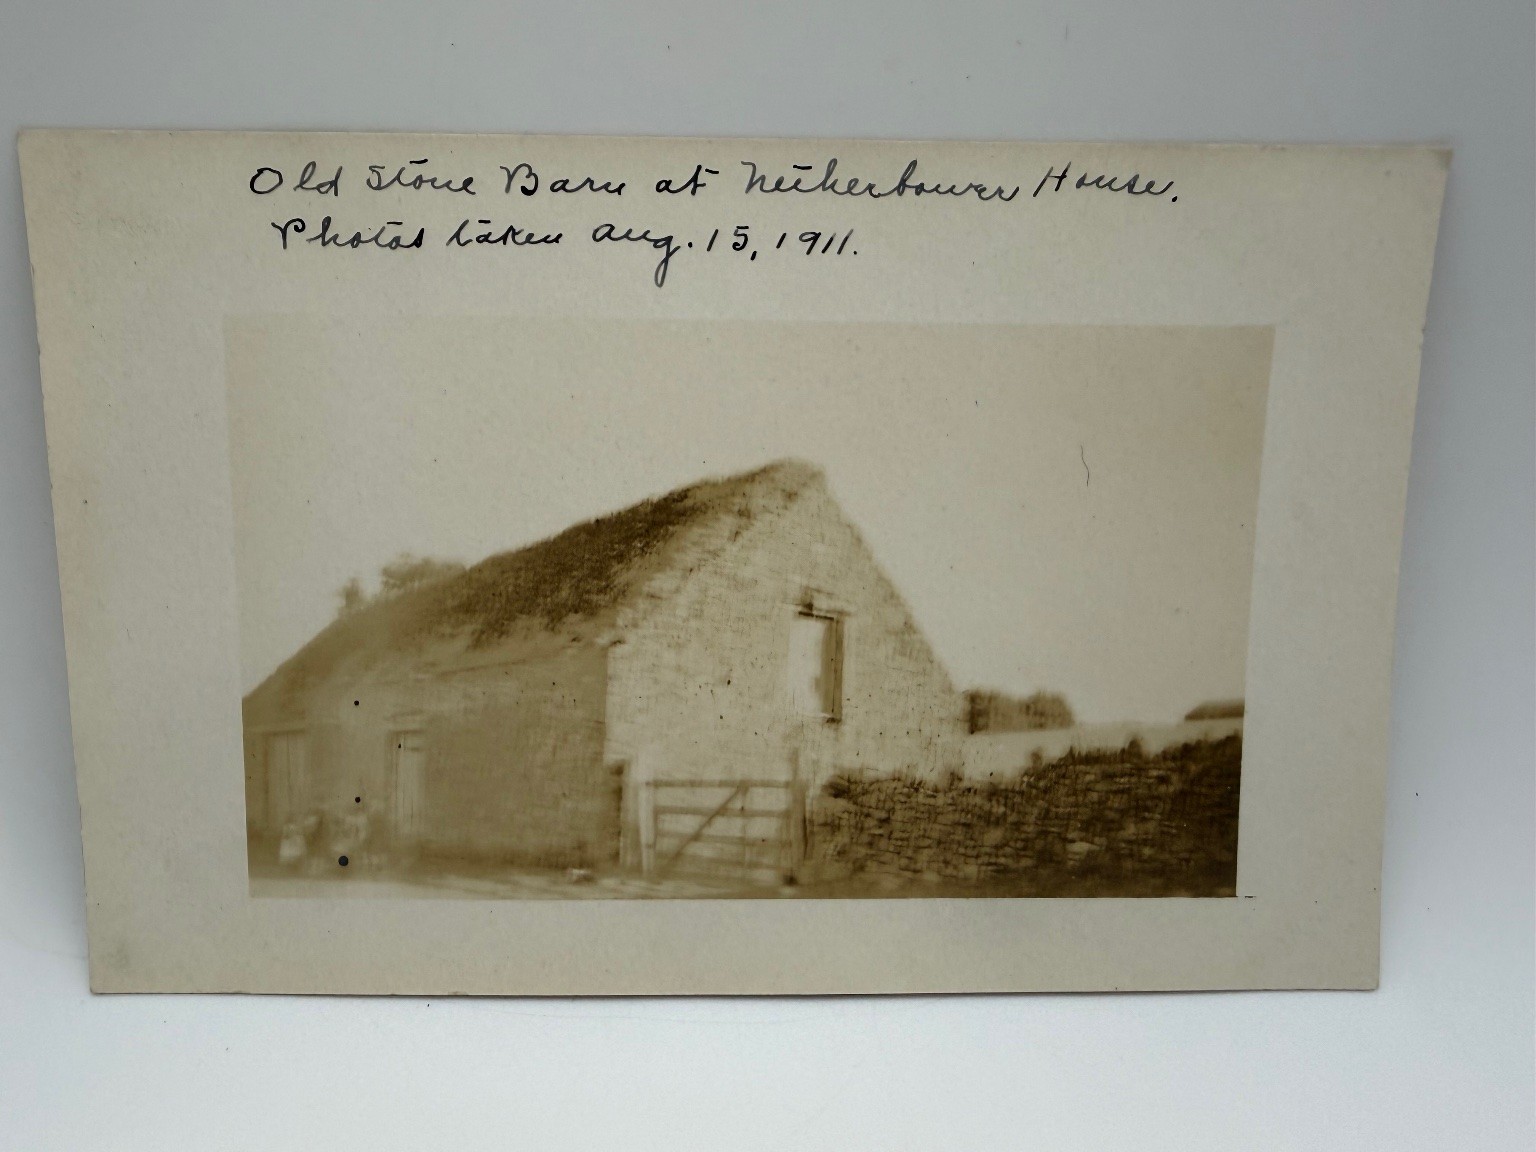 Old Stone Barn at Netherbower House.
Photos taken Aug. 15, 1911.